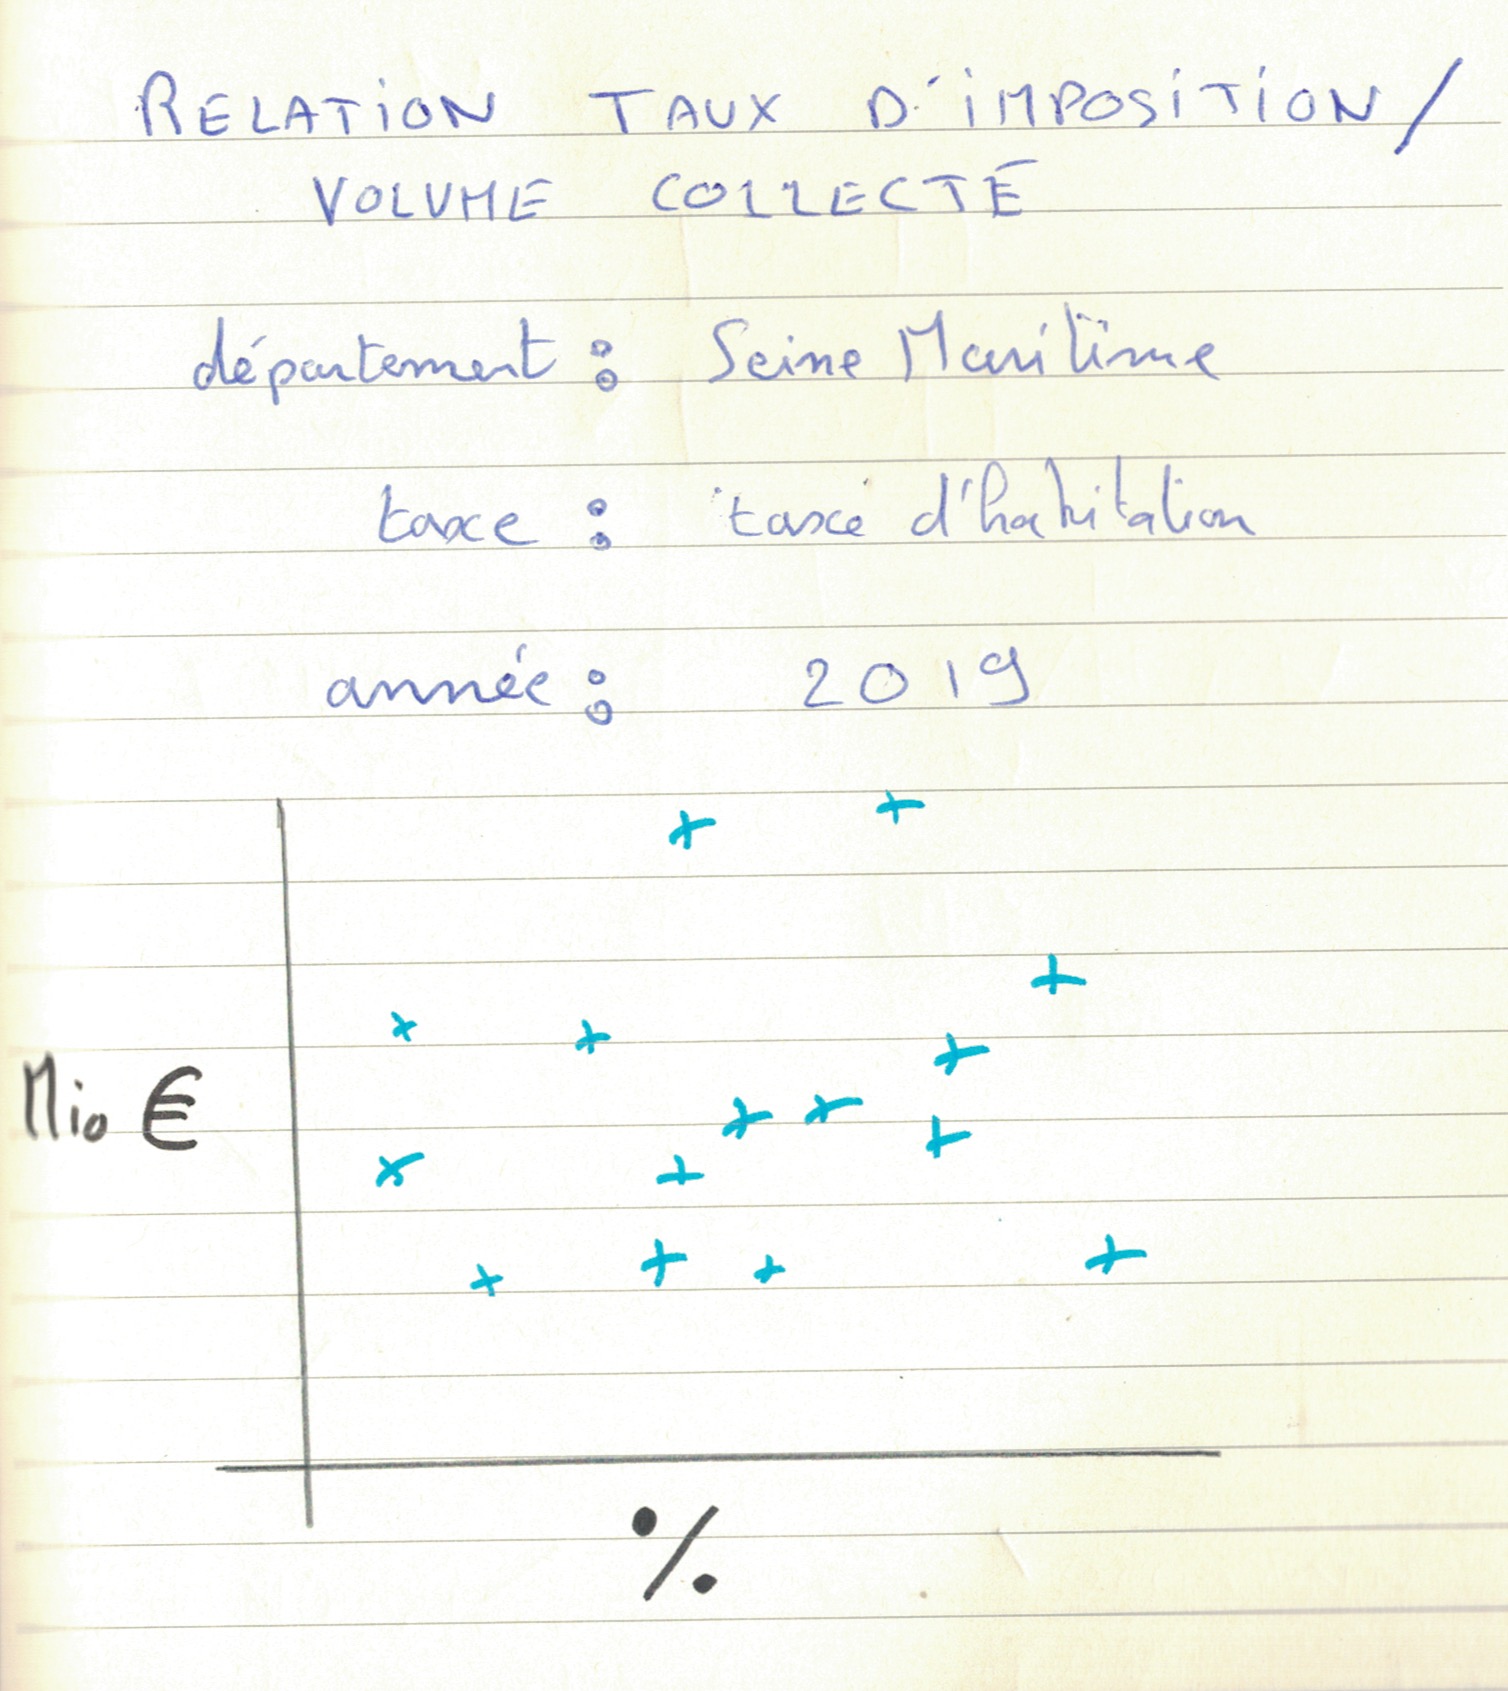 RELATION TAUX D'IMPOSITION /
VOLUME COLLECTÉ
département : Seine Maritime
taxe : taxe d'habitation
année : 2019
Mio €
%